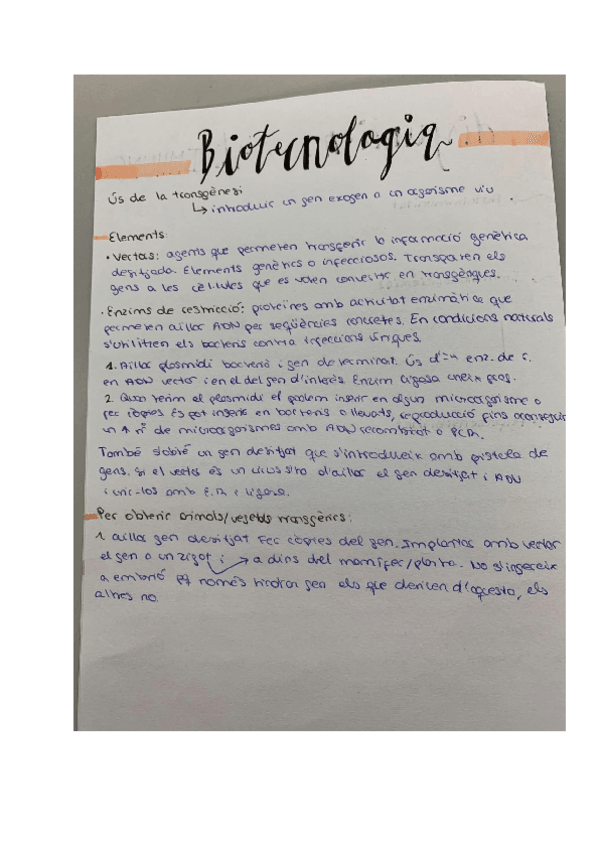 Biotecnologia
Ús de la transgènesi
↳ introduir un gen exogen a un organisme viu.
Elements:
• Vectors: agents que permeten transferir la informació genètica
desitjada. Elements genètics o infecciosos. Transporten els
gens a les cèl·lules que es volen convertir en transgèniques.
• Enzims de restricció: proteïnes amb activitat enzimàtica que
permeten aïllar ADN per seqüències concretes. En condicions naturals
s'utilitzen els bacteris contra infeccions víriques.
1. Aïllar plasmidi bacterià i gen determinat. Ús d'un enz. de r.
en ADN vector i en el del gen d'interès. Enzim ligasa uneix
2. Quan tenim el plasmidi el podem inserir en algun microorganisme o
fer còpies. Es pot inserir en bacteris o llevats, reproducció fins aconseguir
un ↑ nº de microorganismes amb ADN recombinat o PCR.
També s'obté un gen desitjat que s'introdueix amb pistola de
gens. Si el vector és un virus s'ha d'aïllar el gen desitjat i ADN
i unir-los amb E.R i ligasa.
Per obtenir animals/vegetals transgènics:
1. aïllar gen desitjat. Fer còpies del gen. Implantar amb vector
el gen a un zigot i a dins del mamífer/planta. No s'ingereix
a embrió pq només tindran gen els que derivin d'aquesta, els
altres no.